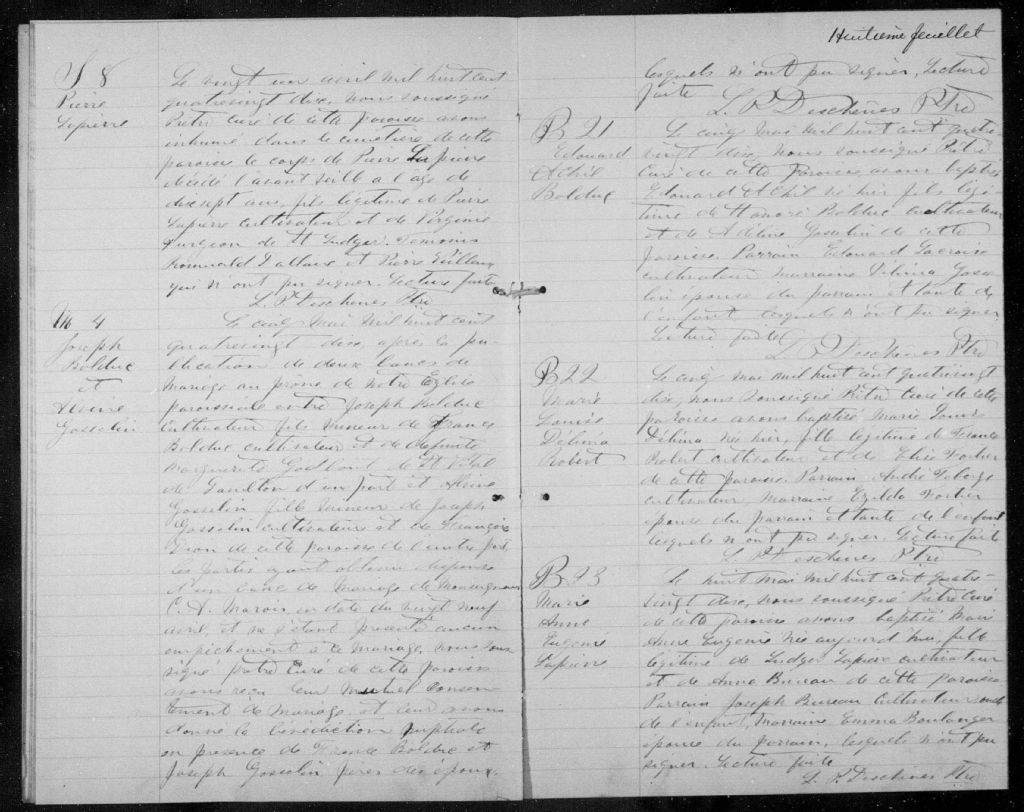 S 8
Pierre
Lapierre
Le vingt un avril mil huit cent
quatrevingt dix, nous soussigné
Prêtre Curé de cette paroisse avons
inhumé dans le cimetière de cette
paroisse le corps de Pierre Lapierre
décédé l'avant veille a l'age de
dixsept ans, fils légitime de Pierre
Lapierre cultivateur et de Virginie
Turgeon de St Ludger. Temoins
Romuald Vallaire et Pierre
qui n'ont pu signer. Lecture faite
L. P. Deschênes Ptre
M 4
Joseph
Bolduc
et
Gosselin
Le cinq Mai Mil huit cent
quatrevingt dix, après la pu-
blication de deux bancs de
Mariage au prône de Notre Eglise
paroissiale entre Joseph Bolduc
Cultivateur fils mineur de France
Bolduc cultivateur et de defunte
Marguerite de St Vital
de Lambton d'un part et
Gosselin fille mineur de Joseph
Gosselin cultivateur et de Françoise
Dion de cette paroisse de l'autre part
les partis ayant obtenu dispense
d'un banc de Mariage de Monseigneur
C. A. Marois en date du vingt neuf
avril, et ne s'étant trouvé aucun
empêchement a ce mariage, nous sous
signé prêtre Curé de cette paroisse
avons reçu leur mutuel consen-
tement de Mariage et leur avons
donné la bénédiction nuptiale
en presence de France Bolduc et
Joseph Gosselin, pères des époux,
Huitième feuillet
lesquels n'ont pu signer, Lecture
faite
L. P. Deschênes Ptre
B 21
Edouard
Achil
Bolduc
Le cinq Mai Mil huit cent quatre-
vingt dix, nous soussigné Prêtre
Curé de cette Paroisse, avons baptisé
Edouard Achil né hier fils légi-
time de Honoré Bolduc cultivateur
et de Adéline Gosselin de cette
paroisse. Parrain Edouard Lacroix
cultivateur Marraine Délina Gosse-
lin épouse du parrain et tante de
l'enfant lesquels n'ont pu signer
Lecture faite
L. P. Deschênes Ptre
B 22
Marie
Louise
Délima
Robert
Le cinq mai mil huit cent quatrevingt
dix, nous soussigné Prêtre Curé de cette
paroisse avons baptisé Marie Louise
Délima née hier, fille légitime de France
Robert cultivateur et de Elise Fortier
de cette paroisse. Parrain André Roberge
cultivateur, Marraine Exilda Fortier
épouse du parrain et tante de l'enfant
lesquels n'ont pu signer. Lecture faite
L. P. Deschênes Ptre
B 23
Marie
Anne
Eugenie
Lapierre
Le huit mai mil huit cent quatre-
vingt dix, nous soussigné Prêtre Curé
de cette paroisse avons baptisé Marie
Anne Eugenie née aujourd'hui, fille
légitime de Ludger Lapierre cultivateur
et de Anna Bureau de cette paroisse
Parrain Joseph Bureau Cultivateur oncle
de l'enfant, Marraine Emma Boulanger
épouse du parrain, lesquels n'ont pu
signer. Lecture faite
L. P. Deschênes Ptre